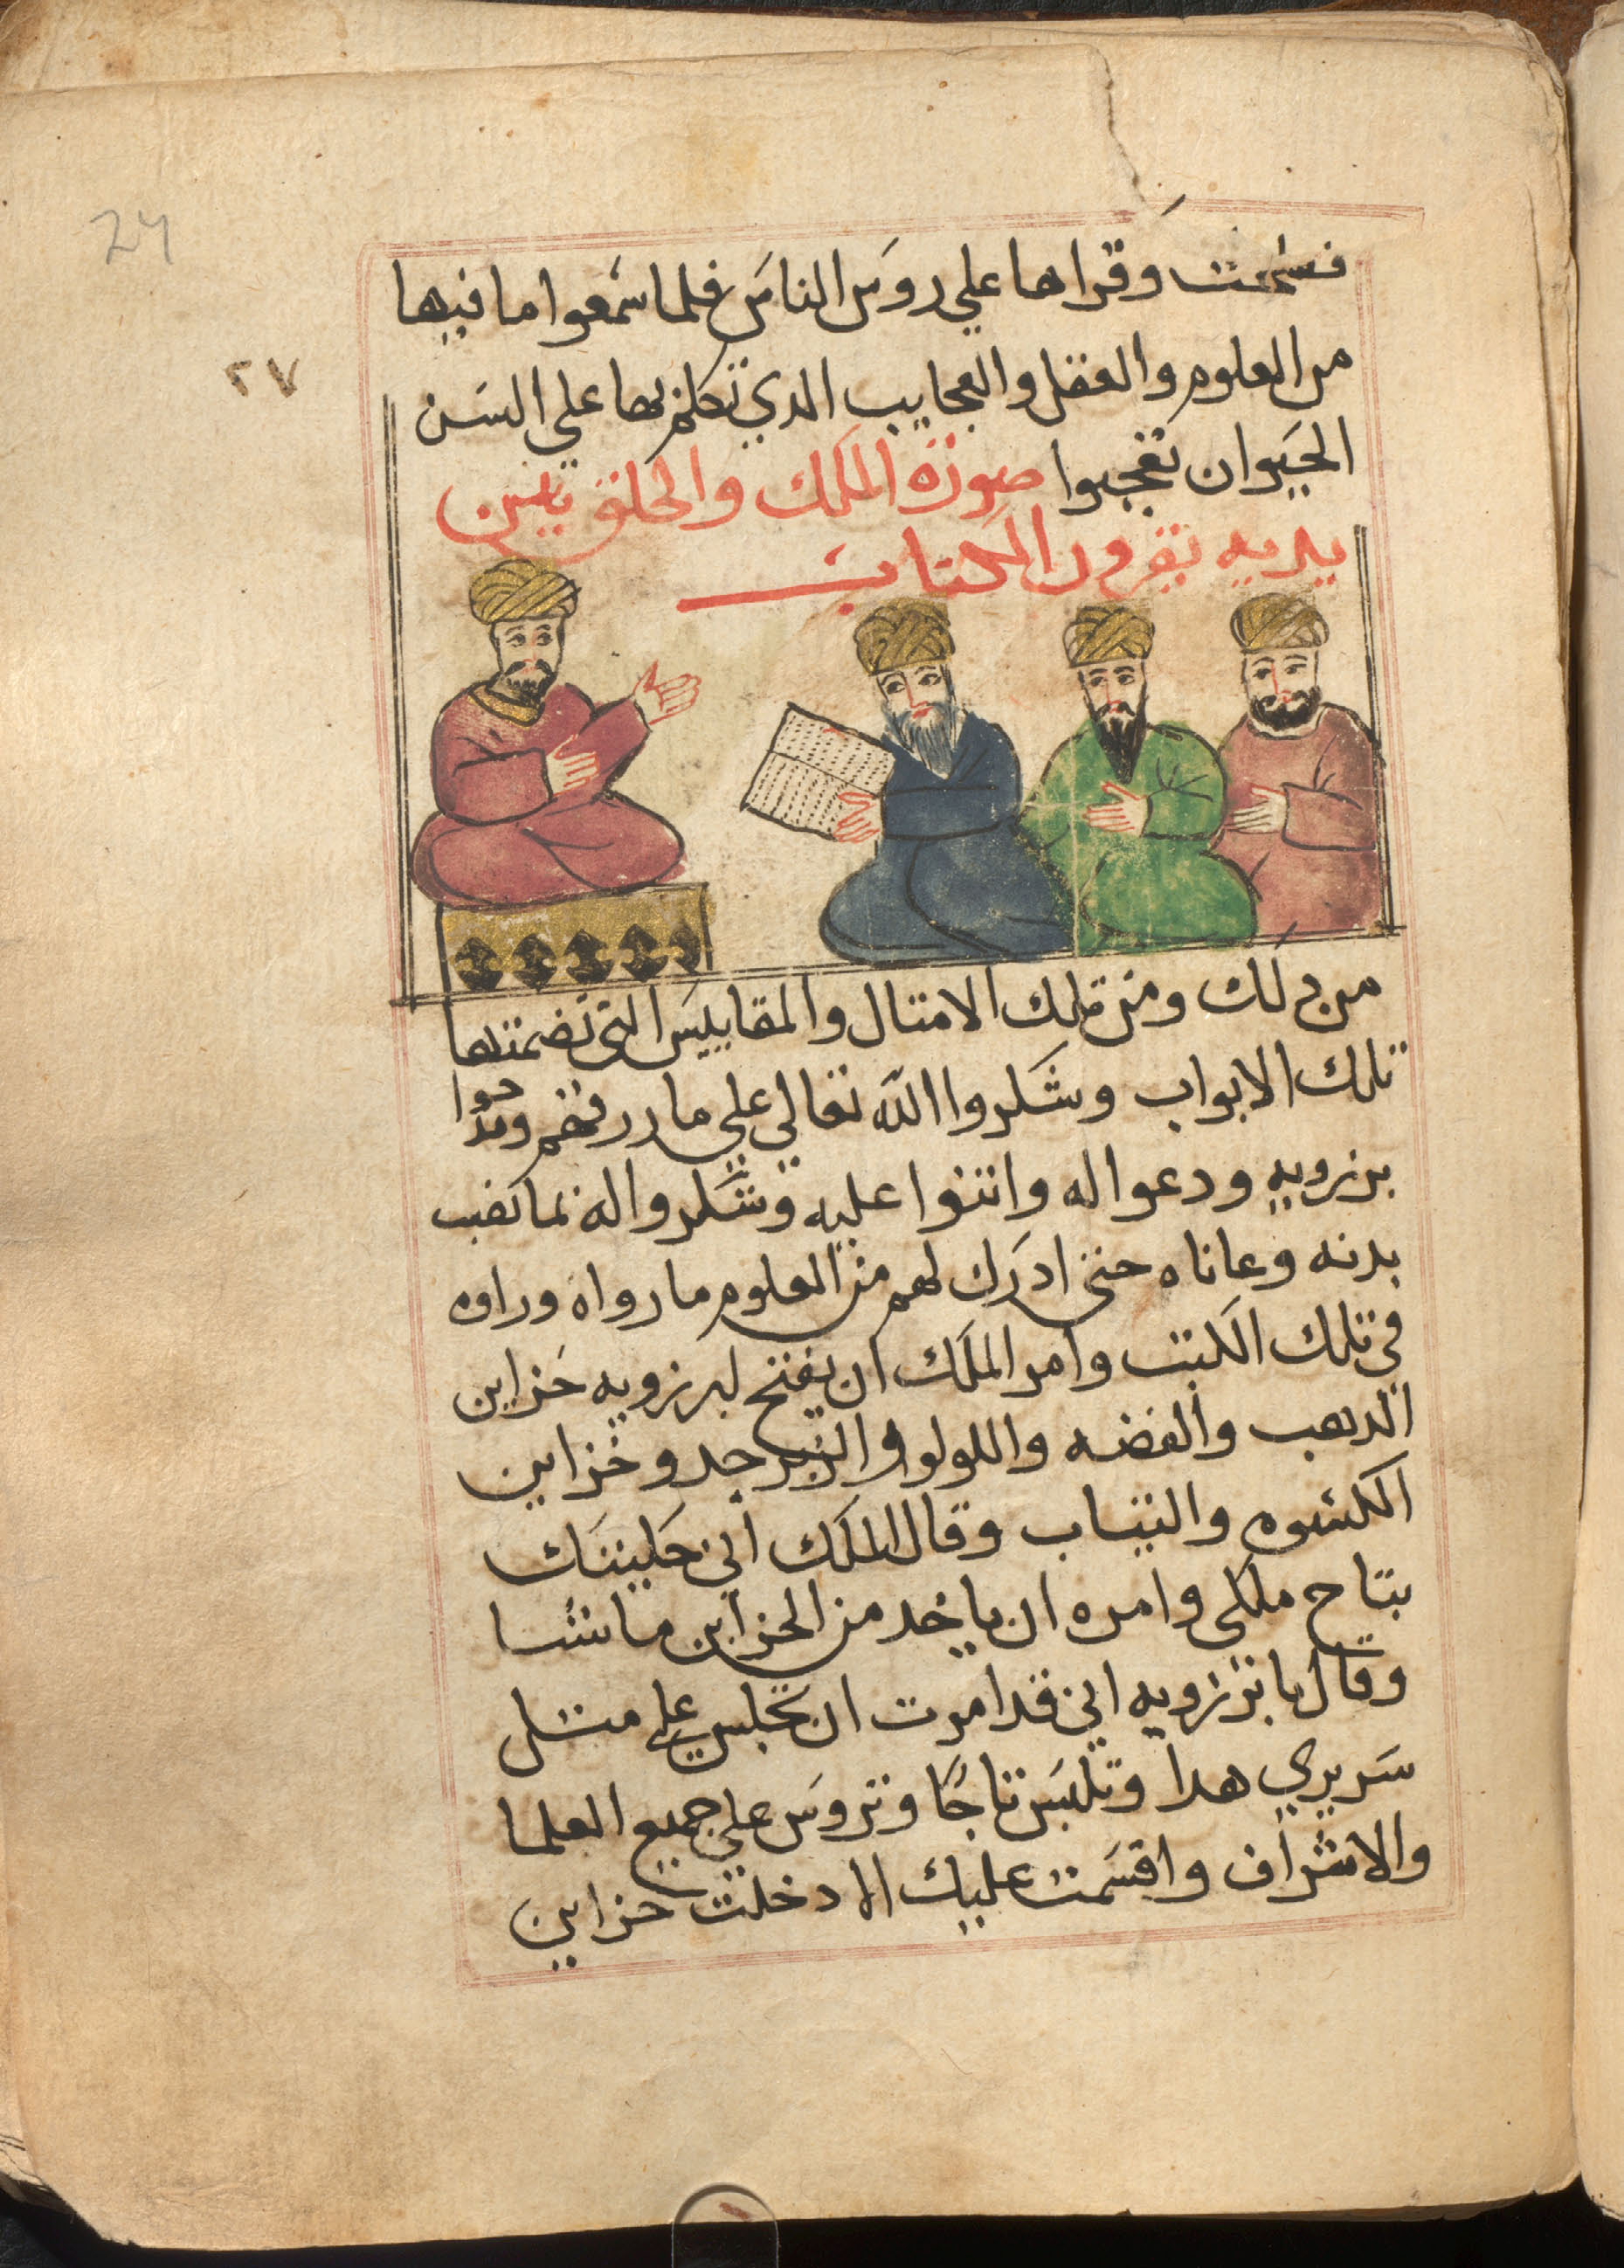 24
٢٧
وقراها علي روس الناس فلما سمعوا ما فيها
من العلوم والعقل والعجايب الدي تكلم بها علي السن
الحيوان تعجبوا صورة الملك والخلق بين
يديه يقرون الكتاب
من دلك ومن تلك الامتال والمقاييس التي تضمنتها
تلك الابواب وشكروا الله تعالي علي ما
برزويه ودعوا له واتنوا عليه وشكروا له
بدنه وعاناه حتي ادرك لهم من العلوم ما رواه وراوه
في تلك الكتب وامر الملك ان يفتح لبرزويه خزاين
الدهب والفضه واللولو والزبرجد وخزاين
الكسوه والتياب وقال الملك اني حليتك
بتاج ملكي وامره ان ياخد من الخزاين ما شا
وقال يا برزويه اني قد امرت ان تجلس علي متل
سريري هدا وتلبس تاجًا وتروس علي جميع العلما
والاشراف واقسمت عليك الا دخلت خزاين